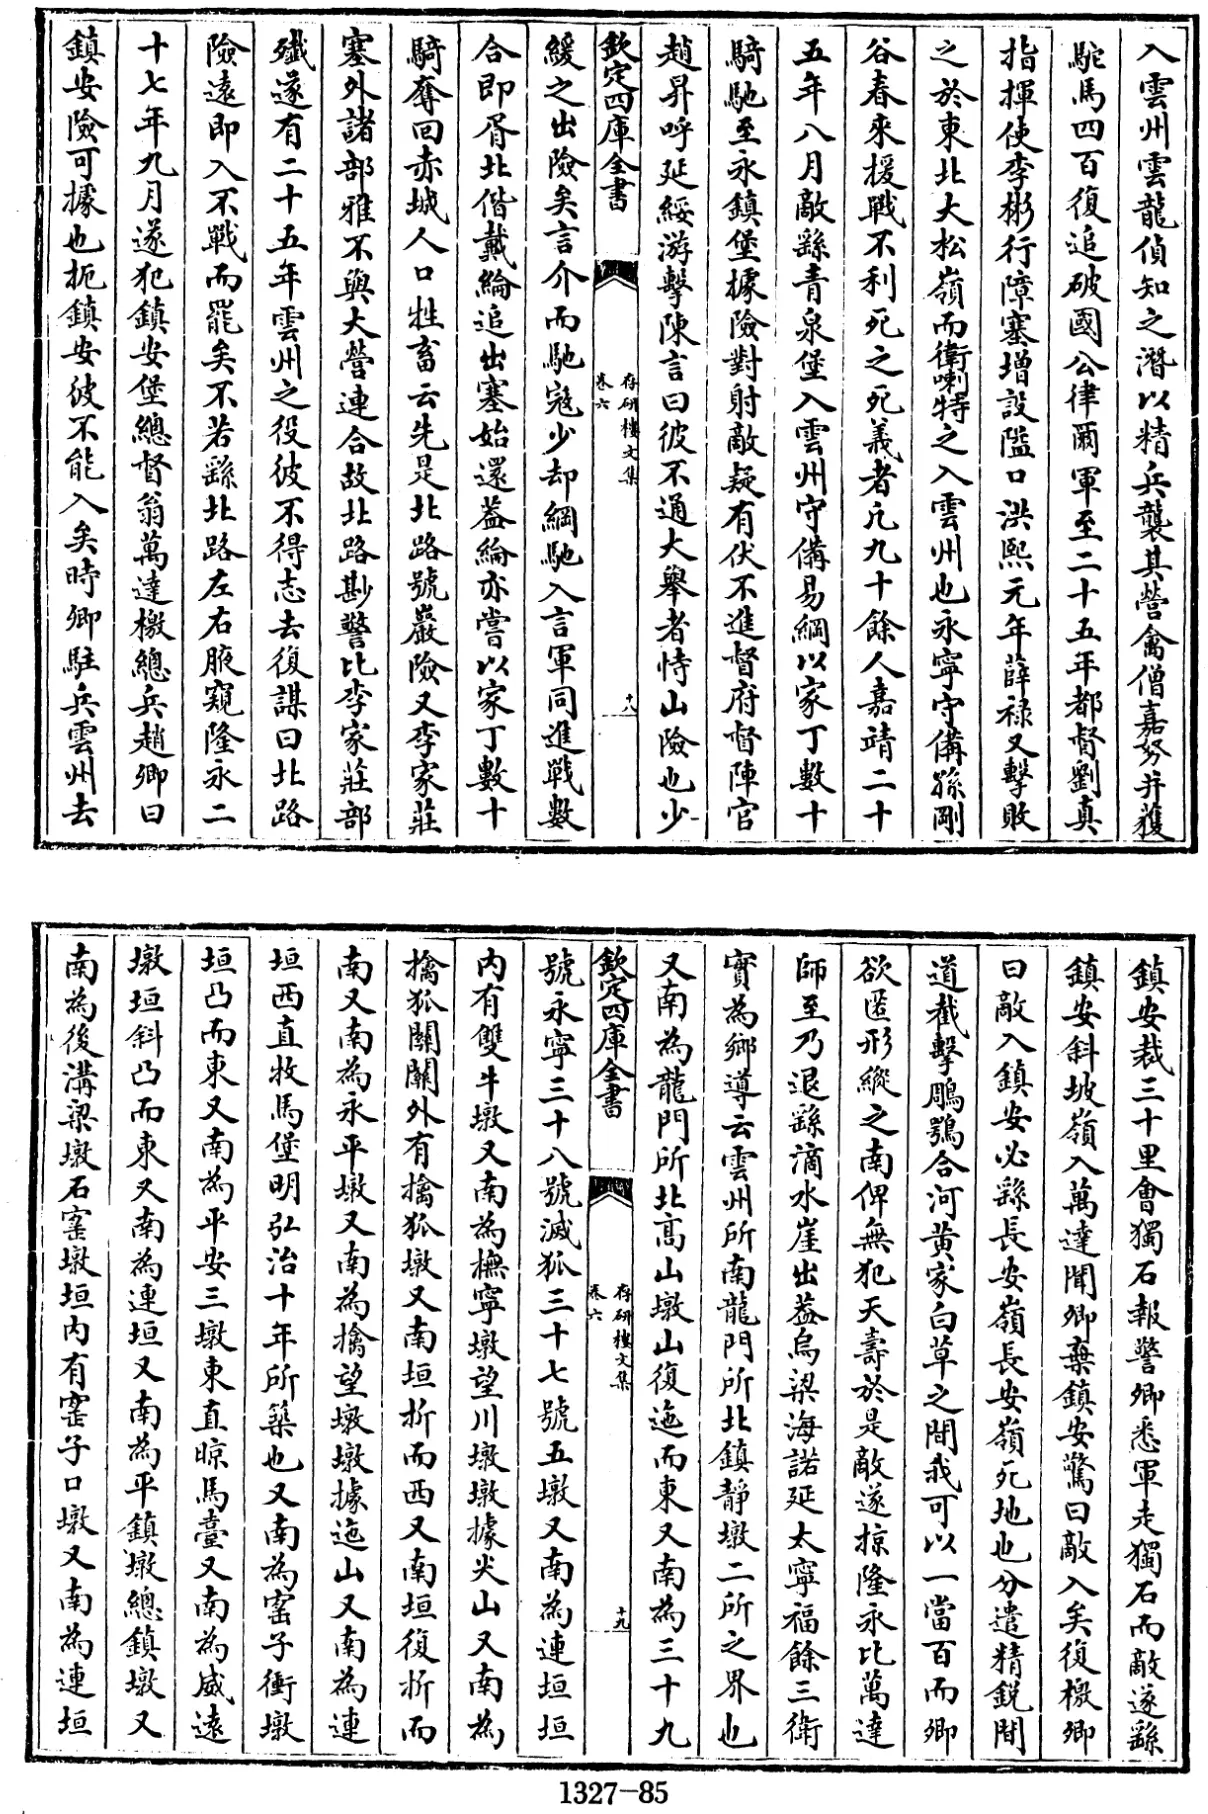 入雲州雲龍偵知之潛以精兵襲其營禽僧嘉努并獲
駝馬四百復追破國公律爾軍至二十五年都督劉真
指揮使李彬行障塞增設隘口洪熙元年薛祿又擊敗
之於東北大松嶺而衛喇特之入雲州也永寧守備孫剛
谷春來援戰不利死之死義者凡九十餘人嘉靖二十
五年八月敵繇青泉堡入雲州守備易綱以家丁數十
騎馳至永鎮堡據險對射敵疑有伏不進督府督陣官
趙昇呼延綏游擊陳言曰彼不通大舉者恃山險也少
欽定四庫全書
存研樓文集
卷六
十八
緩之出險矣言介而馳寇少却綱馳入言軍同進戰數
合即胥北偕戴綸追出塞始還葢綸亦嘗以家丁數十
騎奪回赤城人口牲畜云先是北路號巖險又李家莊
塞外諸部雅不與大營連合故北路尠警比李家莊部
殱遂有二十五年雲州之役彼不得志去復謀曰北路
險遠即入不戰而罷矣不若繇北路左右腋窺隆永二
十七年九月遂犯鎮安堡總督翁萬達檄總兵趙卿曰
鎮安險可據也扼鎮安彼不能入矣時卿駐兵雲州去
鎮安裁三十里會獨石報警卿悉軍走獨石而敵遂繇
鎮安斜坡嶺入萬達聞卿棄鎮安驚曰敵入矣復檄卿
曰敵入鎮安必繇長安嶺長安嶺死地也分遣精銳間
道截擊鵰鶚合河黄家白草之間我可以一當百而卿
欲匿形縱之南俾無犯天壽於是敵遂掠隆永比萬達
師至乃退繇滴水崖出葢烏梁海諾延太寧福餘三衛
實為鄉導云雲州所南龍門所北鎮靜墩二所之界也
又南為龍門所北高山墩山復迤而東又南為三十九
欽定四庫全書
存研樓文集
卷六
十九
號永寧三十八號滅狐三十七號五墩又南為連垣垣
内有雙牛墩又南為橅寧墩望川墩墩據尖山又南為
擒狐關關外有擒狐墩又南垣折而西又南垣復折而
南又南為永平墩又南為擒望墩墩據迤山又南為連
垣西直牧馬堡明弘治十年所築也又南為窑子衝墩
垣凸而東又南為平安三墩東直晾馬臺又南為威遠
墩垣斜凸而東又南為連垣又南為平鎮墩總鎮墩又
南為後溝梁墩石窑墩垣内有窑子口墩又南為連垣
1327-85